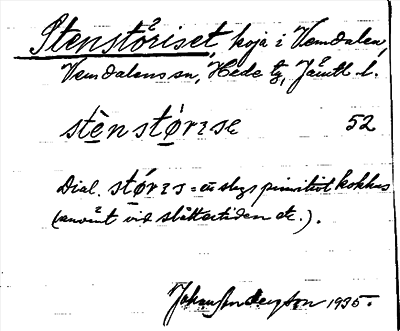 Stenstöriset, koja i Vemdalen,
Vemdalens sn, Hede tg, Jämtl. l.
stènstø̀rɪse 52
Dial. støris = ett slags primitivt kokhus
(använt vid slåttertiden etc.).
Johan Lundengtson 1935.